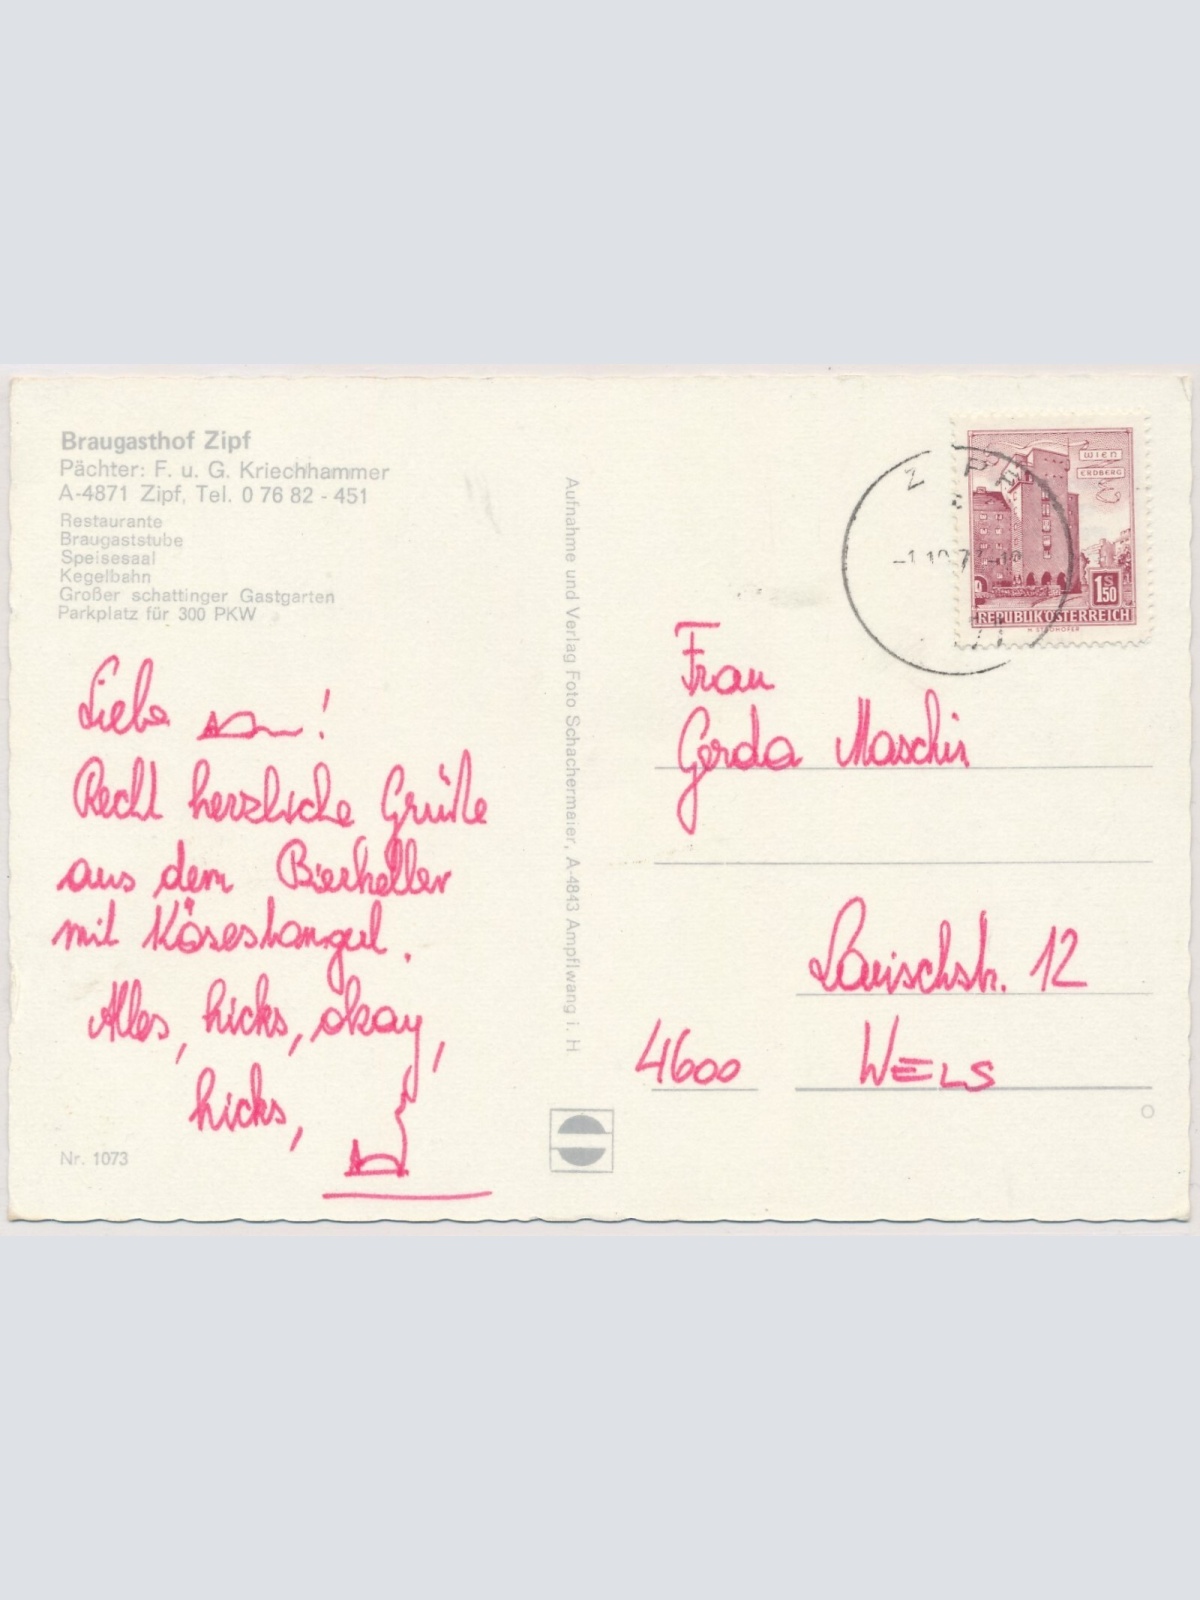 Braugasthof Zipf
Pächter: F. u. G. Kriechhammer
A-4871 Zipf, Tel. 0 76 82 - 451
Restaurante
Braugaststube
Speisesaal
Kegelbahn
Großer schattinger Gastgarten
Parkplatz für 300 PKW
Liebe !
Recht herzliche Grüße
aus dem Bierkeller
mit Käsestangerl.
Alles, hicks, okay,
hicks,
Nr. 1073
Aufnahme und Verlag Foto Schachermaier, A-4843 Ampflwang i. H
ZIPF
WIEN
ERDBERG
1 S 50
REPUBLIK ÖSTERREICH
Frau
Gerda
12
4600 WELS